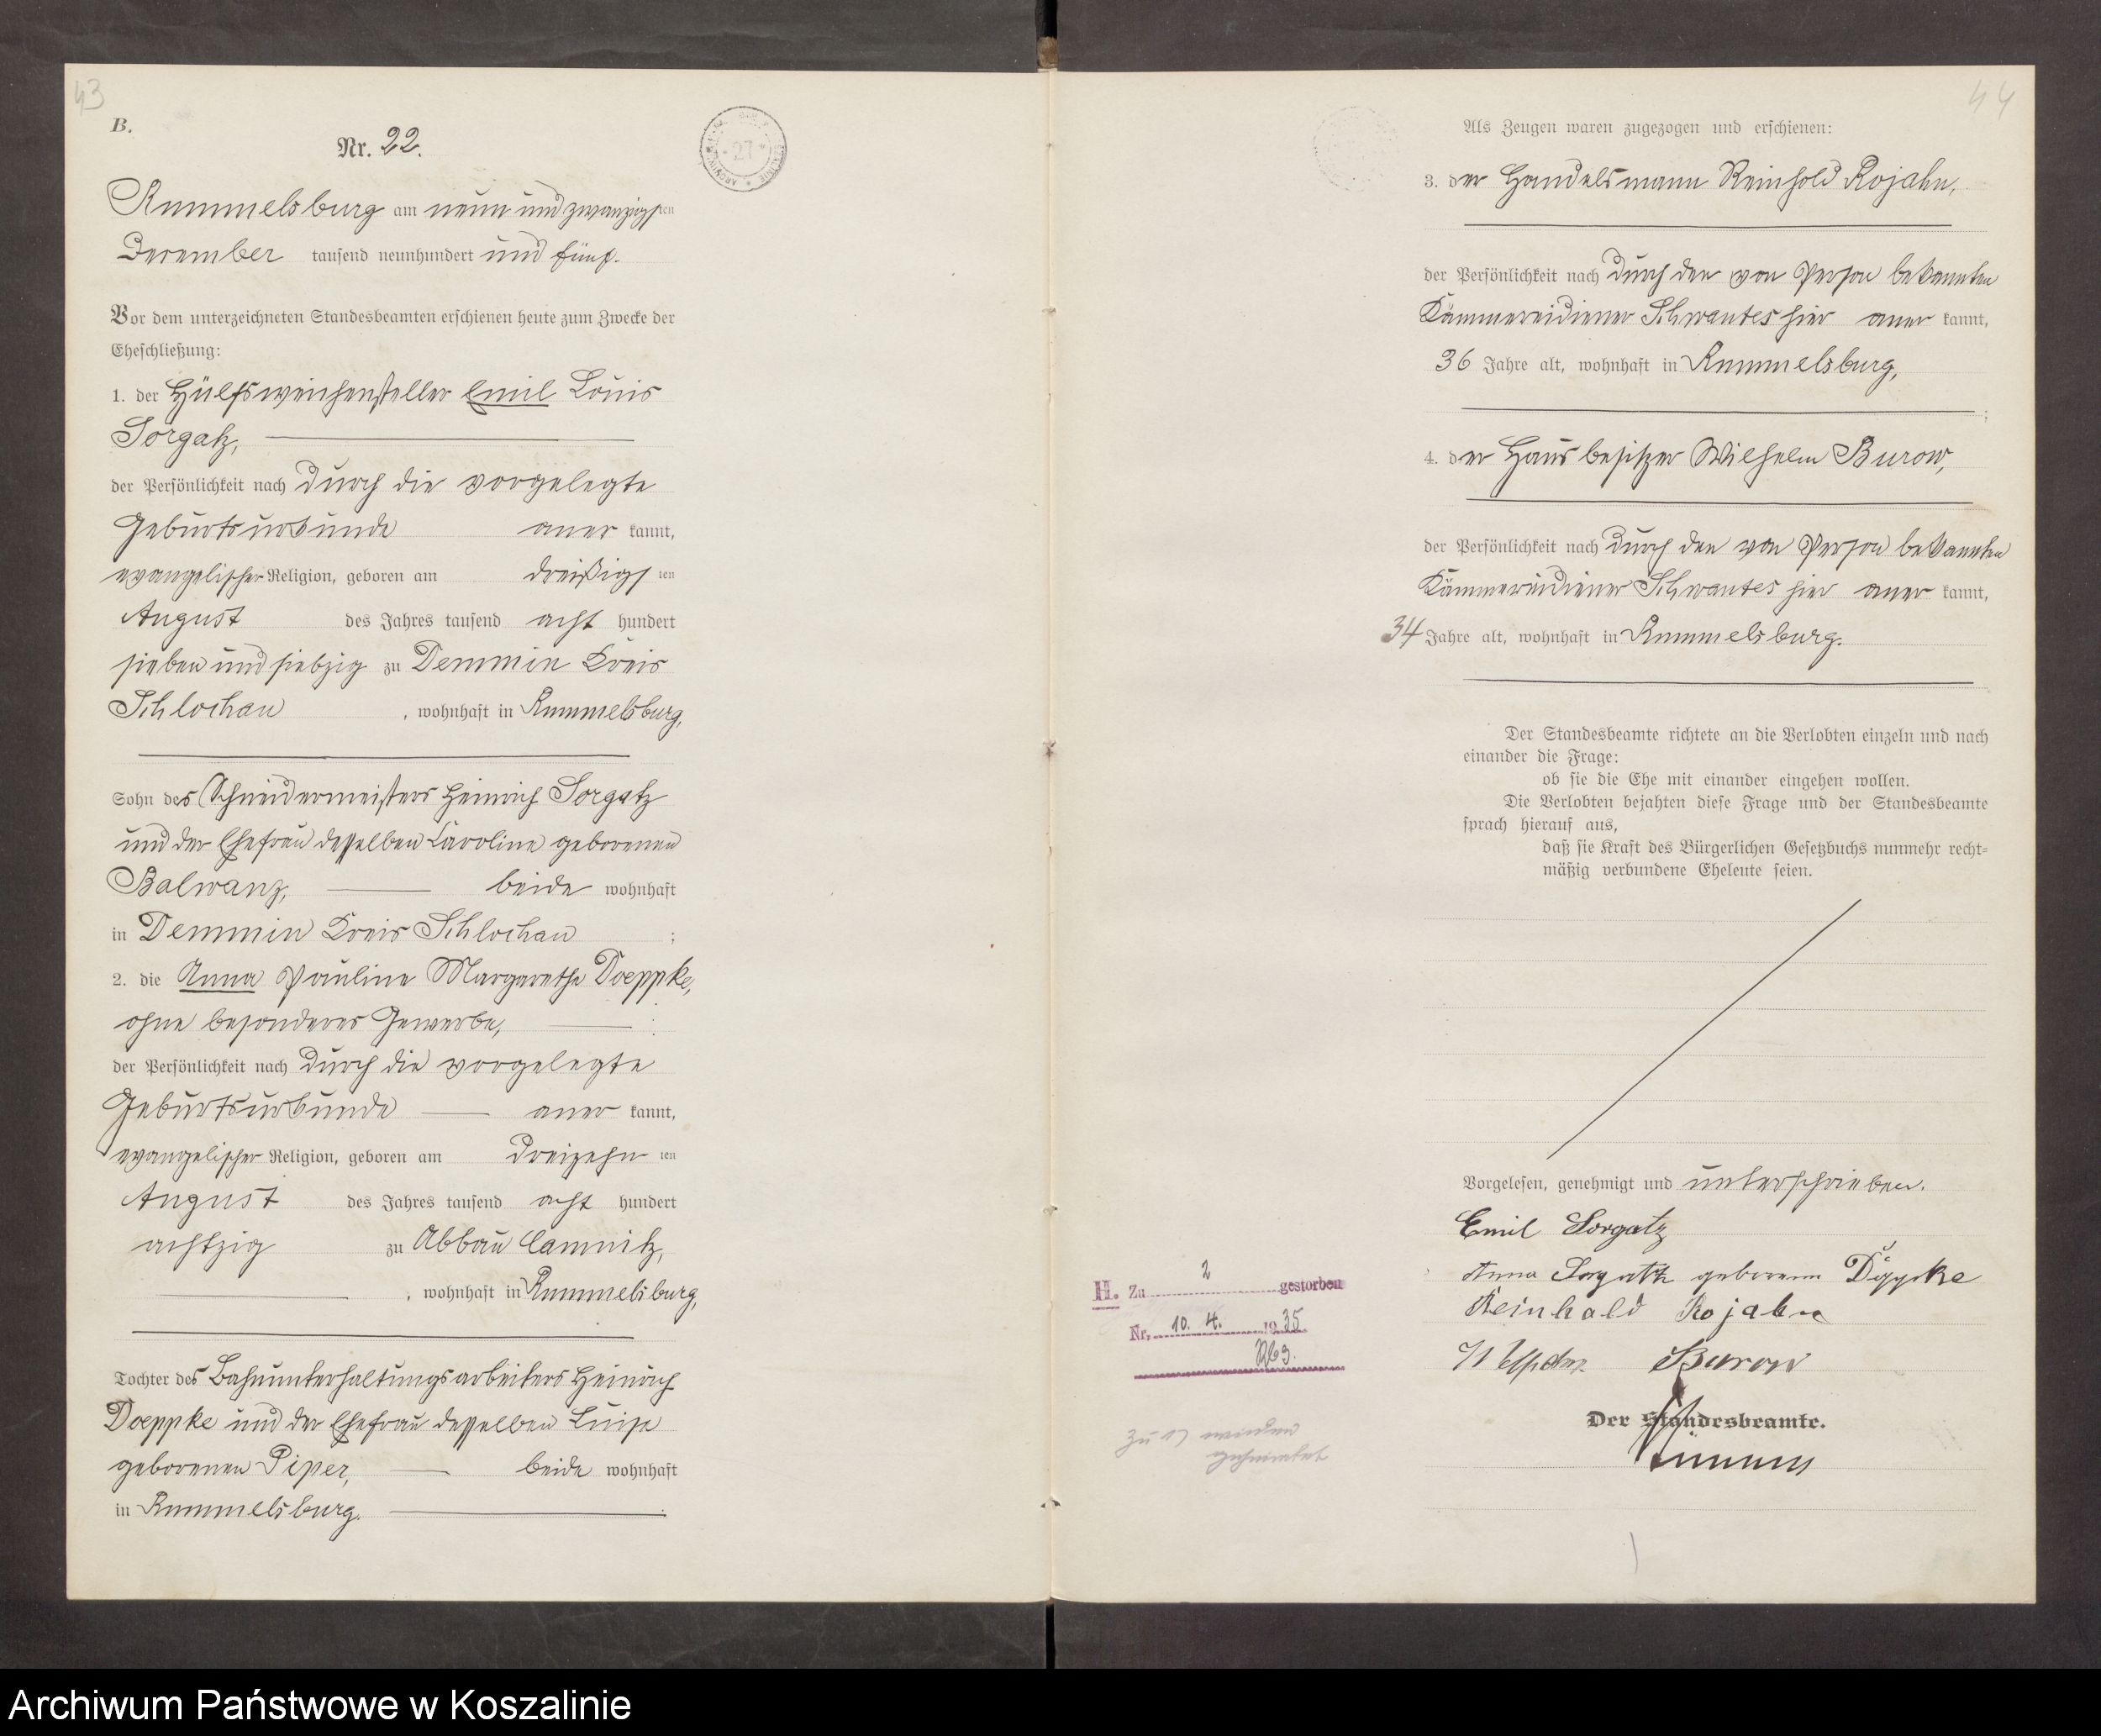 43
B.
Nr. 22.
27
Rummelsburg am neun und zwanzigsten
Dezember tausend neunhundert und fünf.
Vor dem unterzeichneten Standesbeamten erschienen heute zum Zwecke der
Eheschließung:
1. der Hülfsweichensteller Emil Louis
Sorgatz,
der Persönlichkeit nach durch die vorgelegte
Geburtsurkunde aner kannt,
evangelischer Religion, geboren am dreißigsten
August des Jahres tausend acht hundert
sieben und siebzig zu Demmin Kreis
Schlochau , wohnhaft in Rummelsburg,
Sohn des Schneidermeisters Heinrich Sorgatz
und der Ehefrau desselben Karoline geborenen
Balwanz, beide wohnhaft
in Demmin Kreis Schlochau ;
2. die Anna Pauline Margarethe Doeppke,
ohne besonderes Gewerbe,
der Persönlichkeit nach durch die vorgelegte
Geburtsurkunde aner kannt,
evangelischer Religion, geboren am dreizehnten
August des Jahres tausend acht hundert
achtzig zu Abbau Camnitz,
, wohnhaft in Rummelsburg,
Tochter des Bahnunterhaltungsarbeiters Heinrich
Doeppke und der Ehefrau desselben Luise
geborenen Piper, beide wohnhaft
in Rummelsburg.
44
Als Zeugen waren zugezogen und erschienen:
3. der Handelsmann Reinhold Rojahn,
der Persönlichkeit nach durch den von Person bekannten
Kämmereidiener Schwantes hier aner kannt,
36 Jahre alt, wohnhaft in Rummelsburg,
;
4. der Hausbesitzer Wilhelm Burow,
der Persönlichkeit nach durch den von Person bekannten
Kämmereidiener Schwantes hier aner kannt,
34 Jahre alt, wohnhaft in Rummelsburg.
Der Standesbeamte richtete an die Verlobten einzeln und nach
einander die Frage:
ob sie die Ehe mit einander eingehen wollen.
Die Verlobten bejahten diese Frage und der Standesbeamte
sprach hierauf aus,
daß sie Kraft des Bürgerlichen Gesetzbuchs nunmehr recht-
mäßig verbundene Eheleute seien.
Vorgelesen, genehmigt und unterschrieben.
Emil Sorgatz
Anna Sorgatz geborene Döppke
Reinhold Rojahn
Wilhelm Burow
Der Standesbeamte.
H. Zu 2 gestorben
Nr. 10. 4. 1935
Rbg.
zu 1) wieder
geheiratet
Archiwum Państwowe w Koszalinie